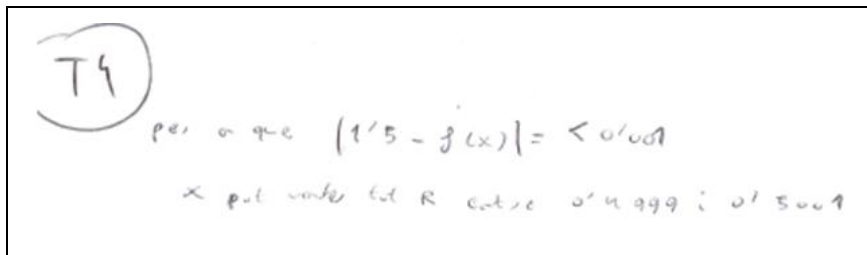 T4
per a que |1'5 - f(x)| = < 0'001
x pot valer tot R entre 0'4999 i 0'5001